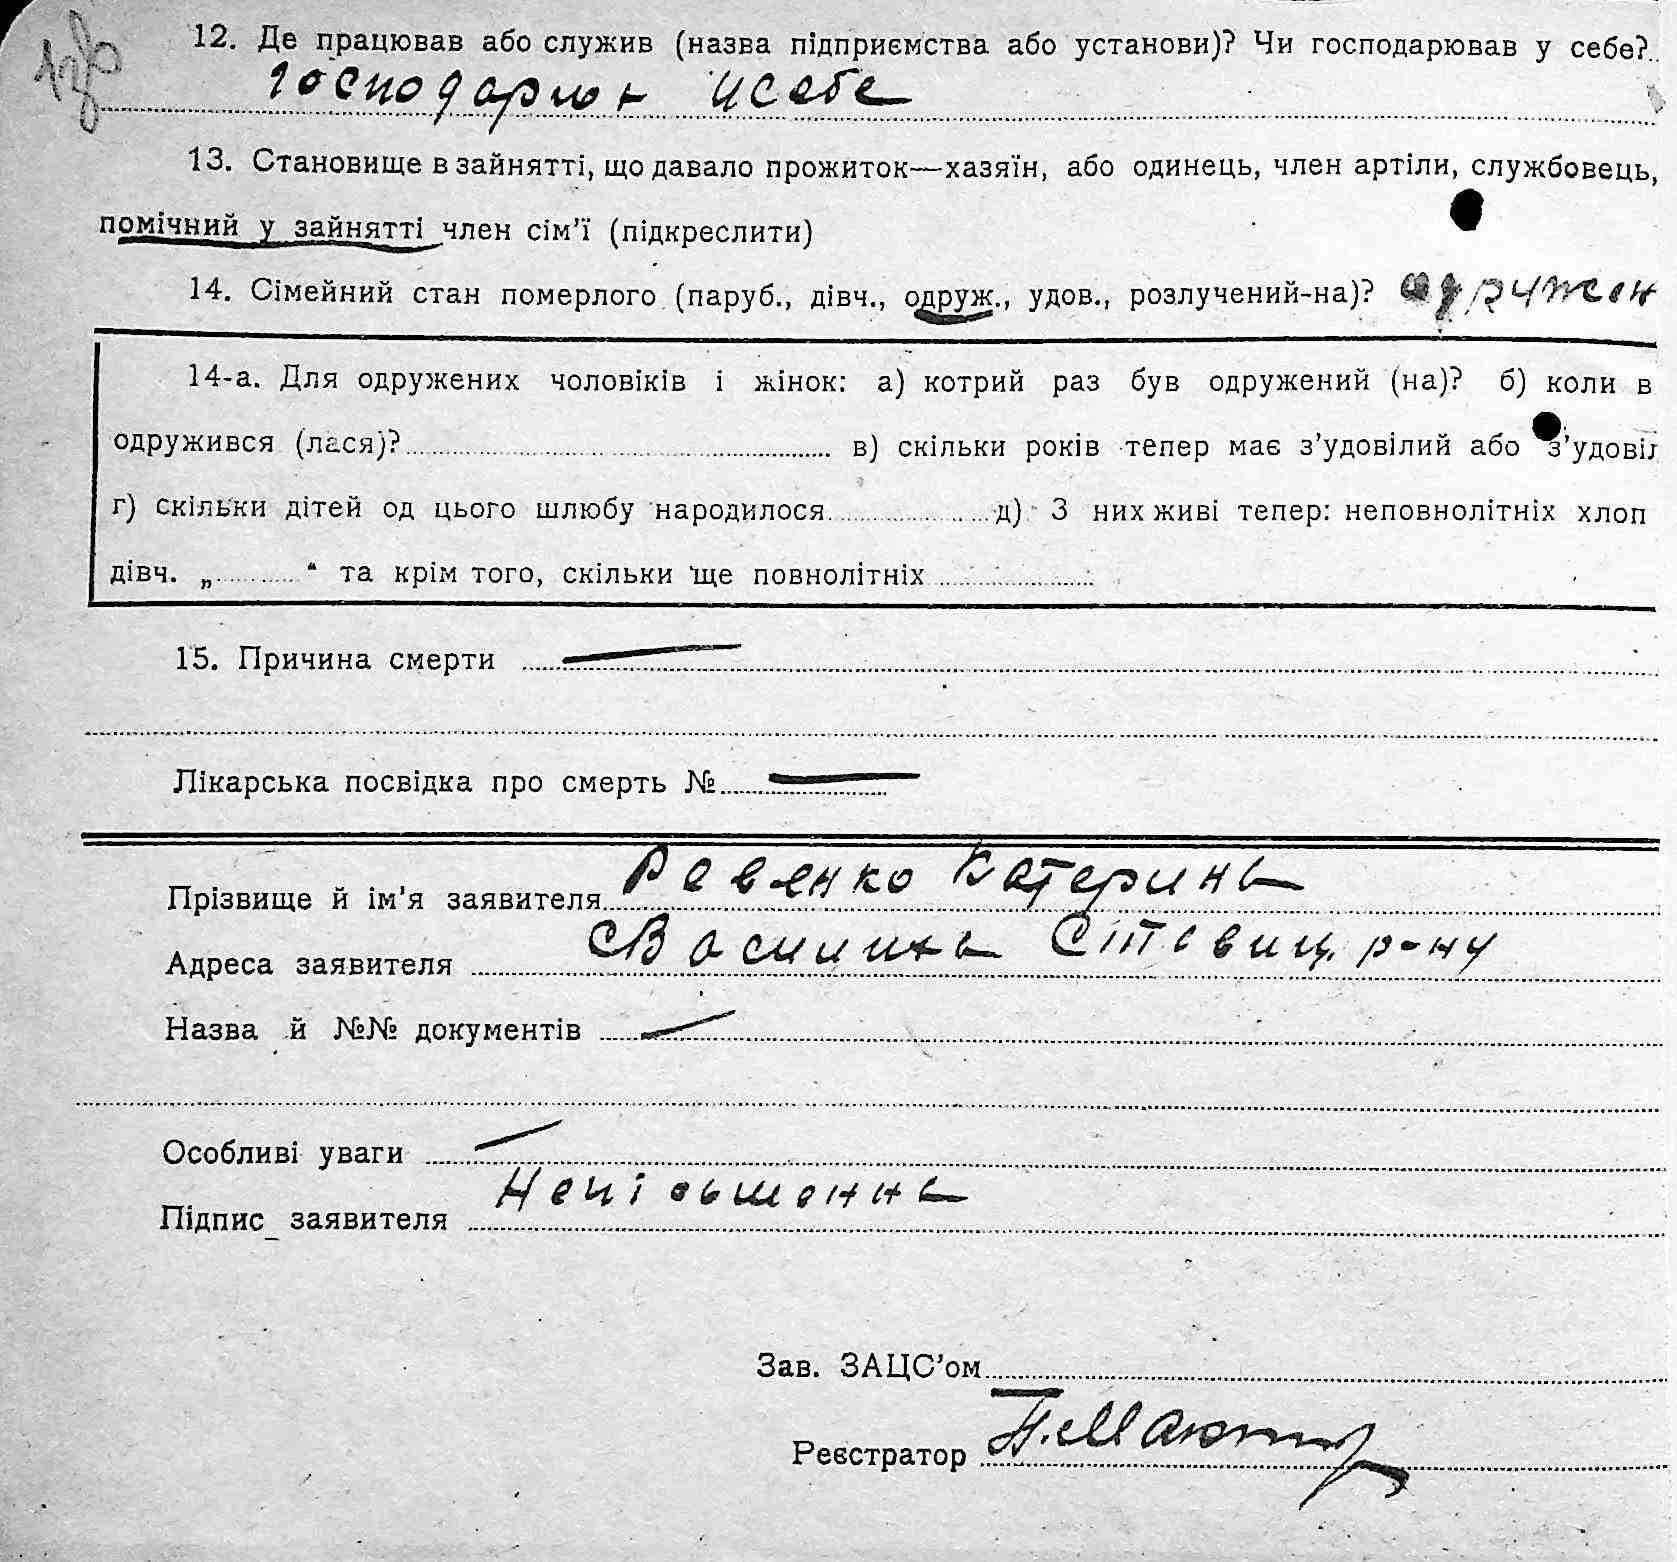 12. Де працював або служив (назва підприємства або установи)? Чи господарював у себе?
господарюв у себе
13. Становище в зайнятті, що давало прожиток—хазяїн, або одинець, член артіли, службовець,
помічний у зайнятті член сім'ї (підкреслити)
14. Сімейний стан померлого (паруб., дівч., одруж., удов., розлучений-на)? одружен
14-а. Для одружених чоловіків і жінок: а) котрий раз був одружений (на)? б) коли в
одружився (лася)? в) скільки років тепер має з'удовілий або з'удовіл
г) скільки дітей од цього шлюбу народилося д) З них живі тепер: неповнолітніх хлоп
дівч. „ “ та крім того, скільки ще повнолітніх
15. Причина смерти —
Лікарська посвідка про смерть № —
Прізвище й ім'я заявителя Ревенко Катерина
Адреса заявителя с Василиха Ставищ. р-ну
Назва й №№ документів —
Особливі уваги —
Підпис заявителя Неписьменна
Зав. ЗАЦС'ом
Реєстратор